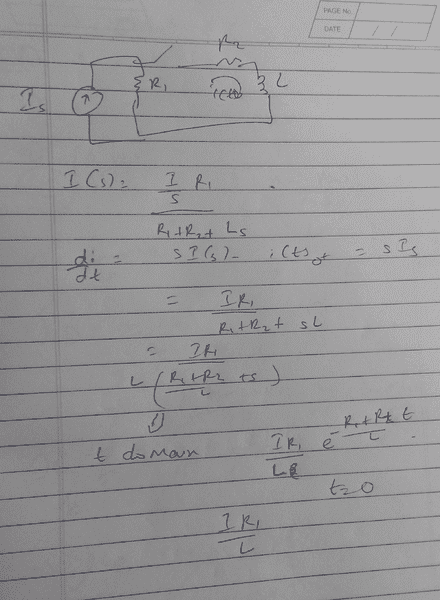 PAGE No.
DATE / /
R2
Is R1 i(t) L
I(s) = I/s R1 / R1+R2+Ls
di/dt = sI(s) - i(t)0+ = sIs
= IR1 / R1+R2+sL
= IR1 / L(R1+R2/L +s)
t domain IR1/L e^-R1+R2/L t.
t=0
IR1/L